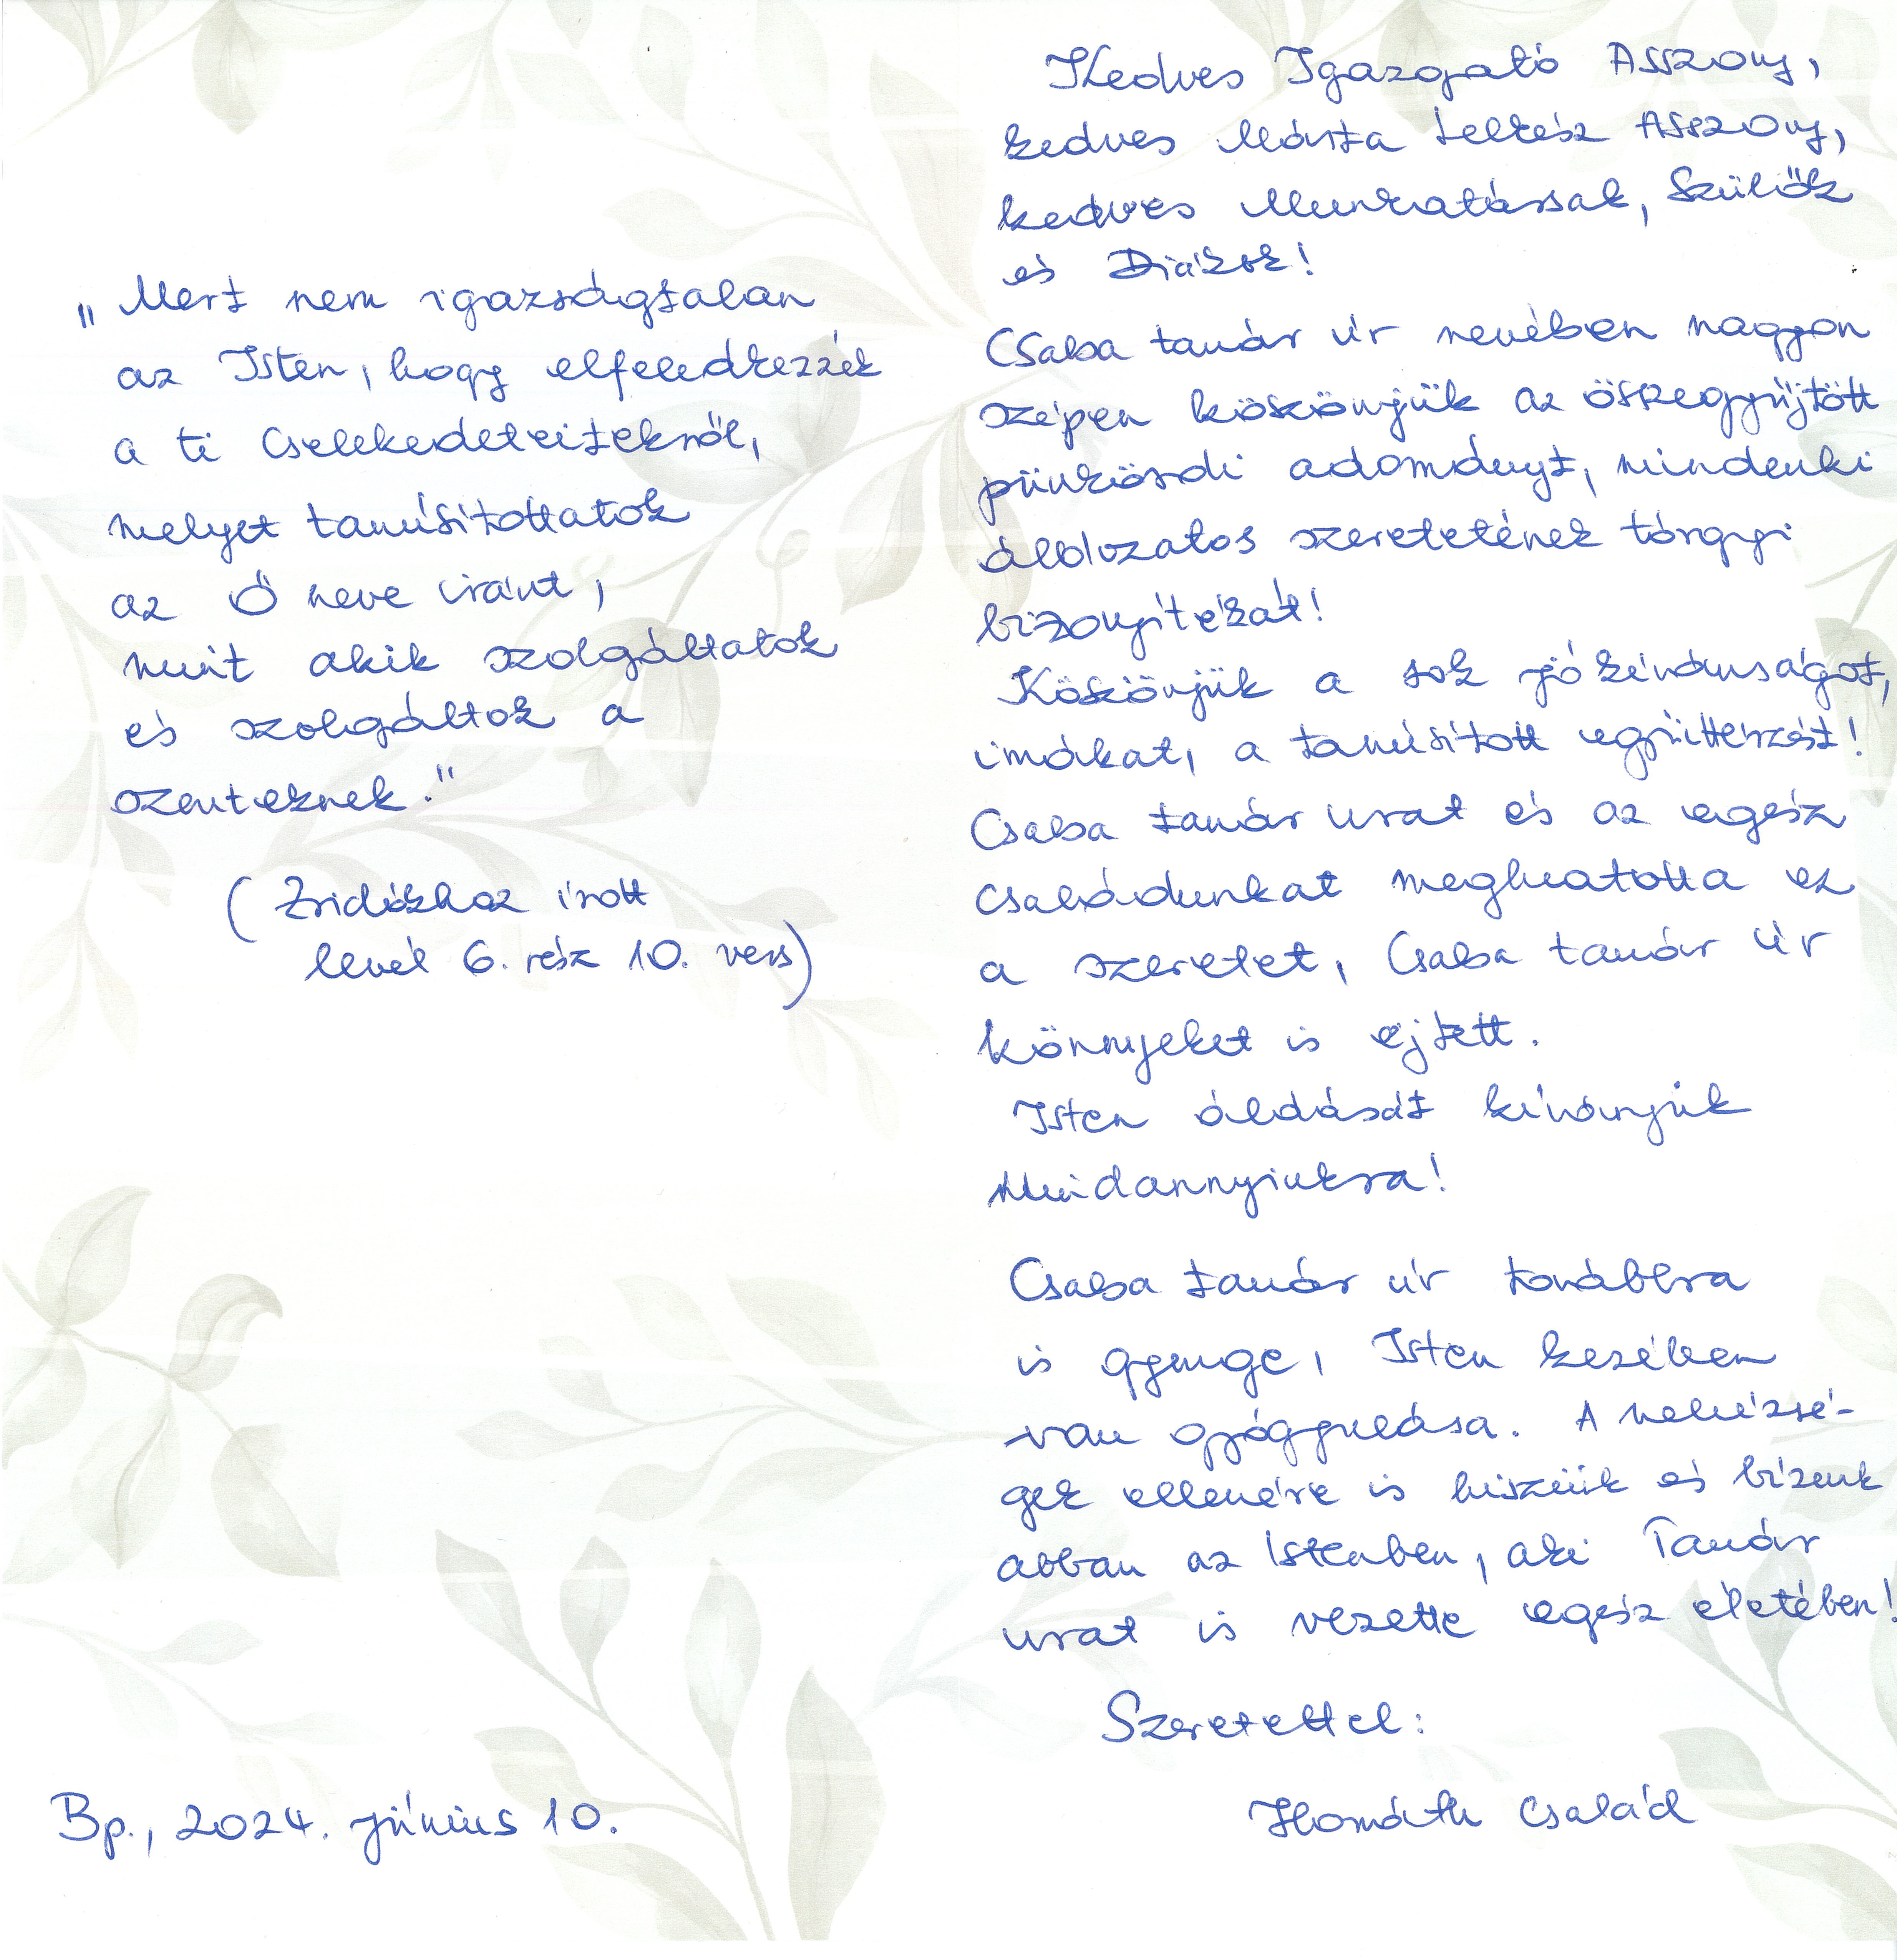 „Mert nem igazságtalan
az Isten, hogy elfeledkezzék
a ti cselekedeteitekről,
melyet tanúsítottatok
az Ő neve iránt,
mint akik szolgáltatok
és szolgáltok a
szenteknek."
(Zsidókhoz írott
levél 6. rész 10. vers)
Bp., 2024. június 10.
Kedves Igazgató Asszony,
kedves Márta Lelkész Asszony,
kedves Munkatársak, Szülők
és Diákok!
Csaba tanár úr nevében nagyon
szépen köszönjük az összegyűjtött
pünkösdi adományt, mindenki
áldozatos szeretetének tárgyi
bizonyítékát!
Köszönjük a sok jó kívánságot,
imákat, a tanúsított együttérzést!
Csaba tanár urat és az egész
családunkat meghatotta ez
a szeretet, Csaba tanár úr
könnyeket is ejtett.
Isten áldását kívánjuk
Mindannyiukra!
Csaba tanár úr továbbra
is gyenge, Isten kezében
van gyógyulása. A nehézsé-
gek ellenére is hiszünk és bízunk
abban az Istenben, aki Tanár
urat is vezette egész életében!
Szeretettel:
Horváth Család